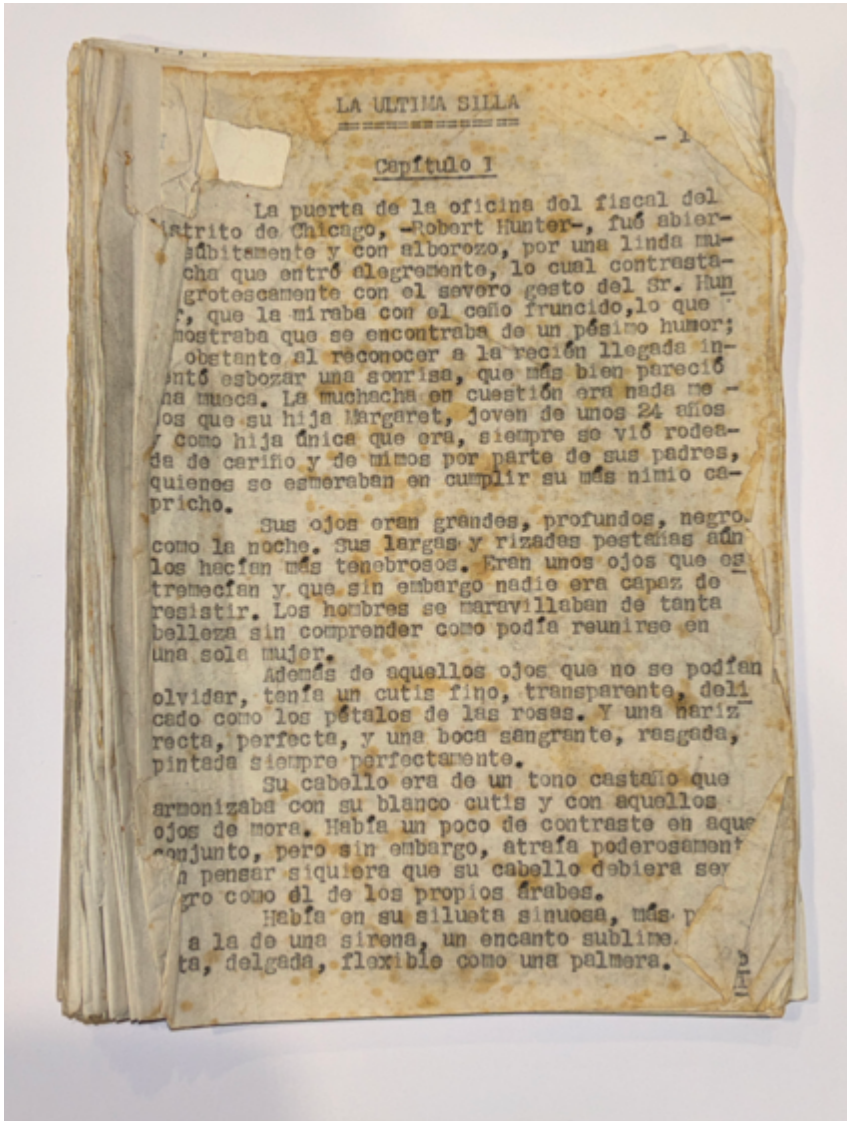 LA ULTIMA SILLA
- 1
Capítulo 1
La puerta de la oficina del fiscal del
istrito de Chicago, -Robert Hunter-, fué abier-
súbitamente y con alborozo, por una linda mu-
cha que entró alegremente, lo cual contrasta-
grotescamente con el severo gesto del Sr. Hun
r, que la miraba con el ceño fruncido,lo que
mostraba que se encontraba de un pésimo humor;
obstante al reconocer a la recién llegada in-
entó esbozar una sonrisa, que más bien pareció
na mueca. La muchacha en cuestión era nada me -
os que su hija Margaret, joven de unos 24 años
y como hija única que era, siempre se vió rodea-
da de cariño y de mimos por parte de sus padres,
quienes se esmeraban en cumplir su más nimio ca-
pricho.
Sus ojos eran grandes, profundos, negro
como la noche. Sus largas y rizadas pestañas aún
los hacían más tenebrosos. Eran unos ojos que es
tremecían y que sin embargo nadie era capaz de
resistir. Los hombres se maravillaban de tanta
belleza sin comprender como podía reunirse en
una sola mujer.
Además de aquellos ojos que no se podían
olvidar, tenía un cutis fino, transparente, deli
cado como los pétalos de las rosas. Y una nariz
recta, perfecta, y una boca sangrante, rasgada,
pintada siempre perfectamente.
Su cabello era de un tono castaño que
armonizaba con su blanco cutis y con aquellos
ojos de mora. Había un poco de contraste en aque
conjunto, pero sin embargo, atraía poderosament
n pensar siquiera que su cabello debiera ser
gro como él de los propios árabes.
Había en su silueta sinuosa, más p
a la de una sirena, un encanto sublime.
ta, delgada, flexible como una palmera.